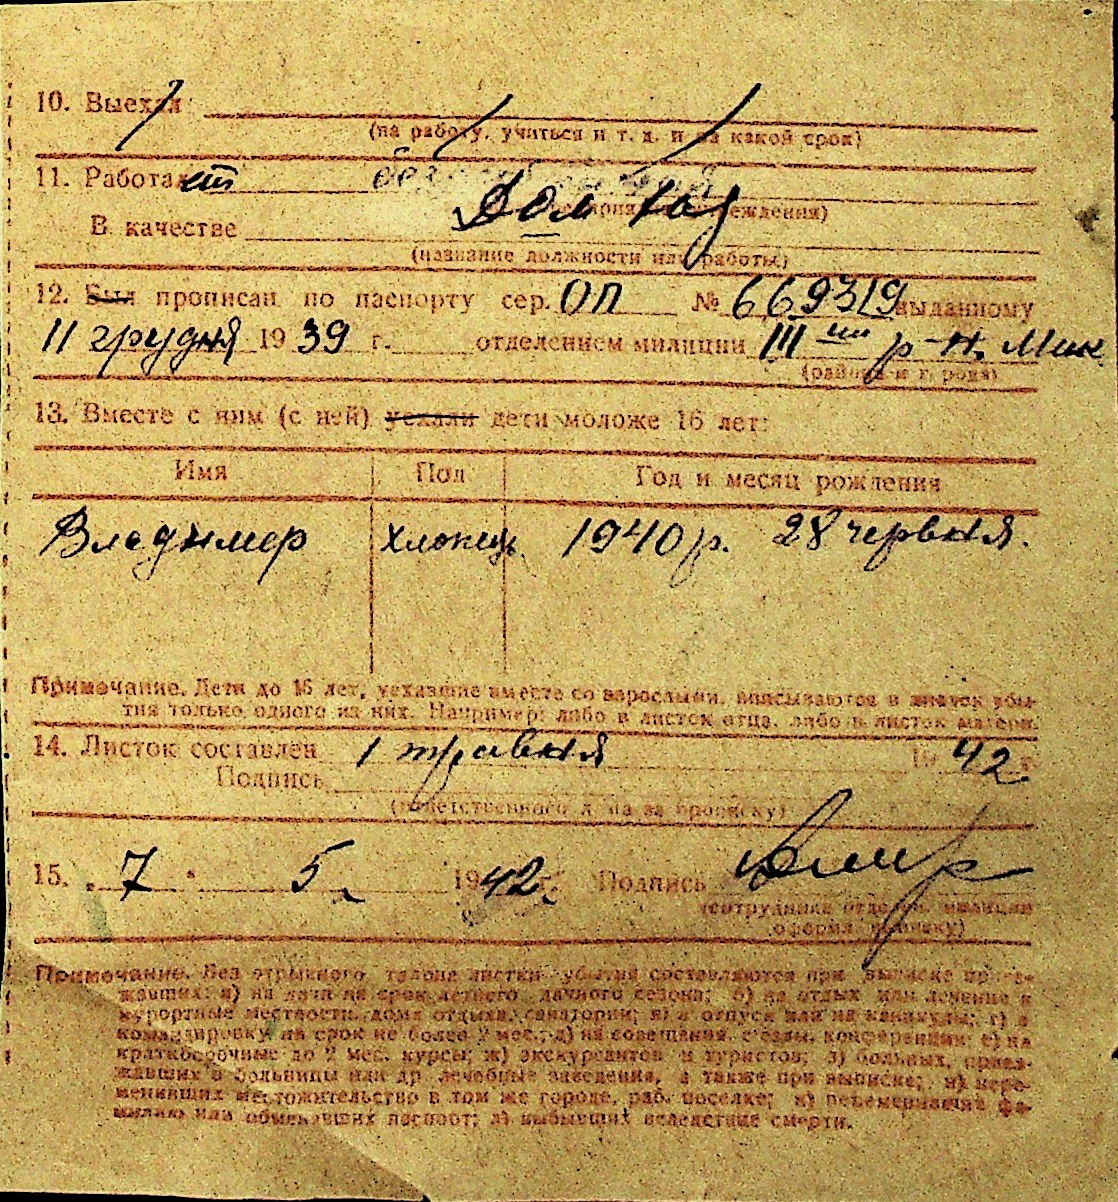 10. Выехал
(на работу, учиться и т. д. и на какой срок)
11. Работает
Дом хоз
В качестве
(название должности или работы)
12. Был прописан по паспорту сер. ОП № 669319 выданному
11 грудня 1939 г. отделением милиции III р-н. Мик
(района и города)
13. Вместе с ним (с ней) уехали дети моложе 16 лет:
Имя Пол Год и месяц рождения
Владимер хлопець 1940 р. 28 червня.
Примечание. Дети до 16 лет, уехавшие вместе со взрослыми, вписываются в листок убы-
тия только одного из них. Например: либо в листок отца, либо в листок матери.
14. Листок составлен 1 травня 1942 г.
Подпись
(ответственного лица за прописку)
15. „7" 5 1942 г. Подпись
(сотрудника отделен. милиции
оформ. прописку)
Примечание. Без отрывного талона листки убытия составляются при выписке приез-
жавших: а) на дачи на срок летнего дачного сезона; б) на отдых или лечение в
курортные местности, дома отдыха, санатории; в) в отпуск или на каникулы; г) в
командировку на срок не более 2 мес.; д) на совещания, с'езды, конференции; е) на
краткосрочные до 2 мес. курсы; ж) экскурсантов и туристов; з) больных, приез-
жавших в больницы или др. лечебные заведения, а также при выписке; и) пере-
менивших местожительство в том же городе, раб. поселке; к) переменивших фа-
милию или обменявших паспорт; л) выбывших вследствие смерти.